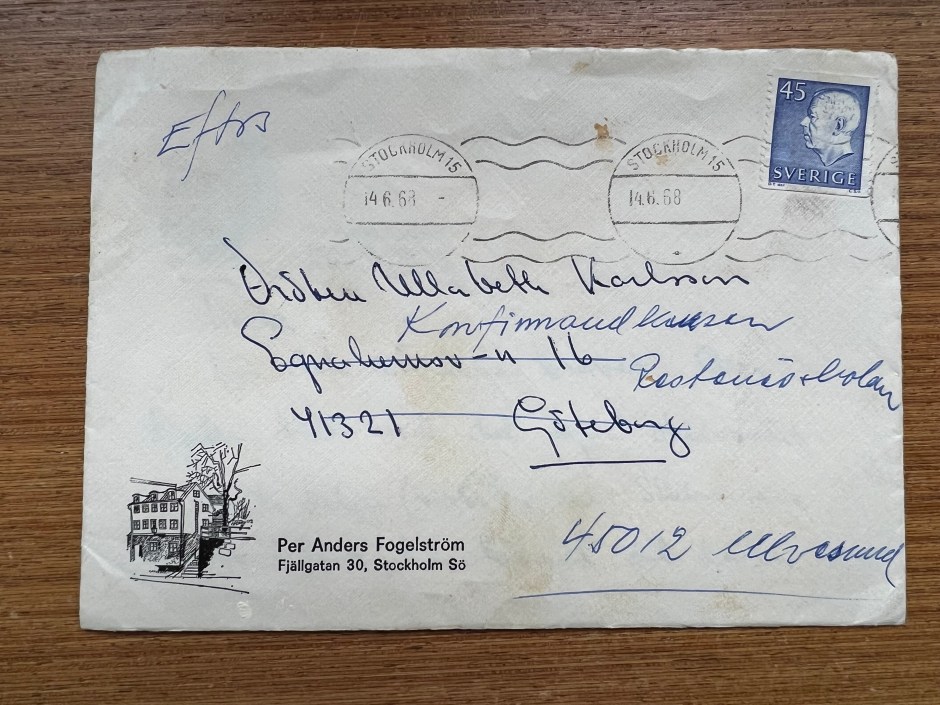 Eftrs
STOCKHOLM 15
14.6.68 -
STOCKHOLM 15
14.6.68
45
SVERIGE
Fröken Ullabeth Karlsson
Konfirmandkursen
16
41321 Göteborg
45012 Ulvesund
Per Anders Fogelström
Fjällgatan 30, Stockholm Sö